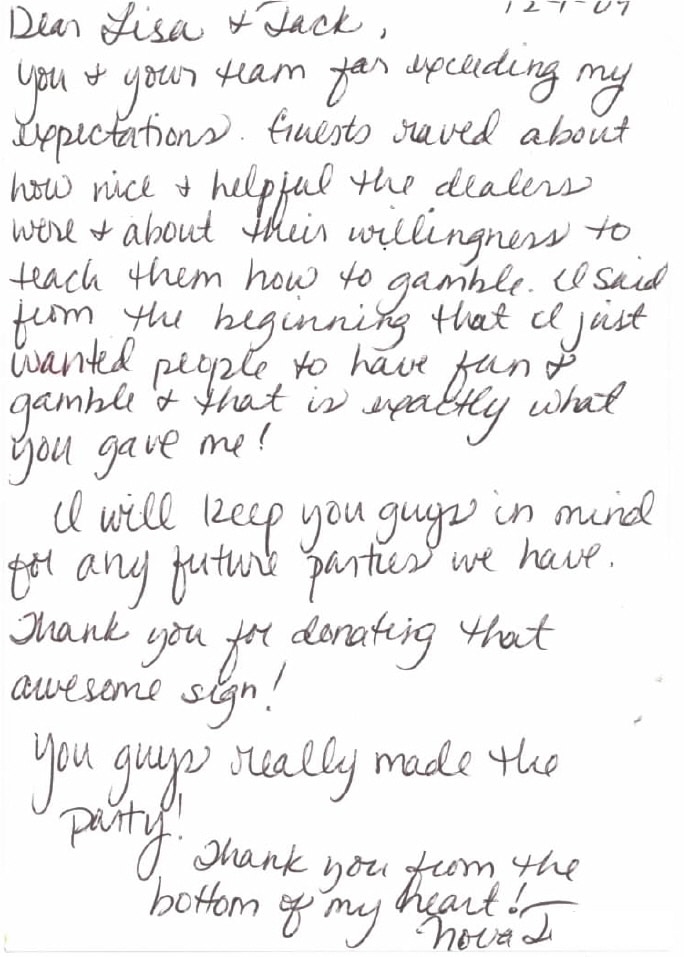 12-1-09
Dear Lisa & Jack,
You & your team far exceeding my
expectations. Guests raved about
how nice & helpful the dealers
were & about their willingness to
teach them how to gamble. I said
from the beginning that I just
wanted people to have fun &
gamble & that is exactly what
you gave me!
I will keep you guys in mind
for any future parties we have.
Thank you for donating that
awesome sign!
You guys really made the
party!
Thank you from the
bottom of my heart!
Nova